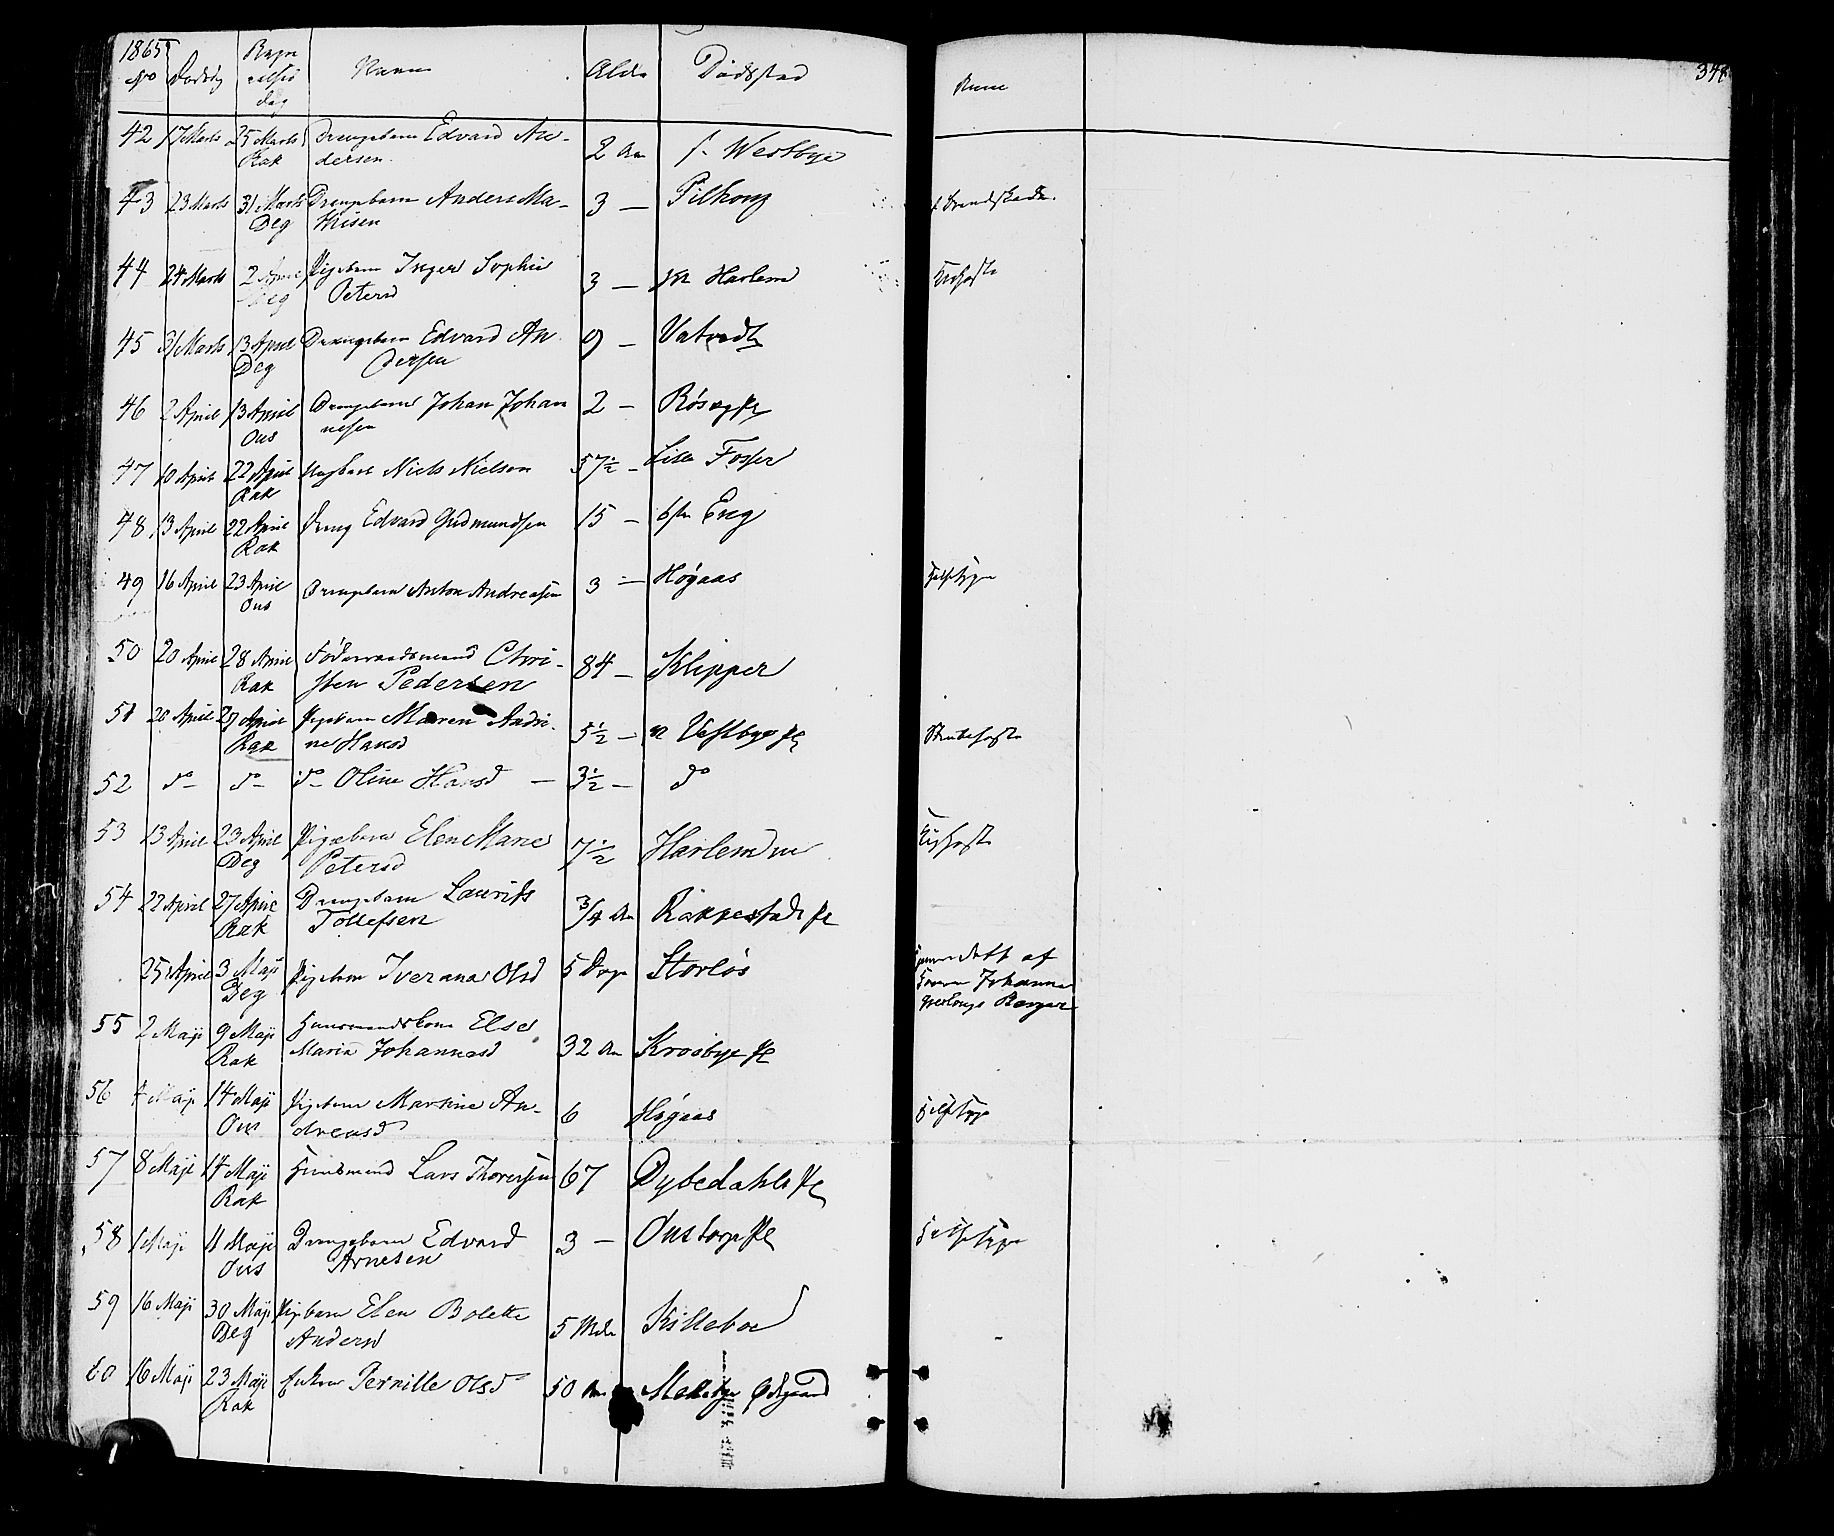 1865
No Dødsdag Begravelsesdag Navn Alder Dødsstad Anm 348
42 17 Marts 25 Marts Drengebarn Edvard An-
Rak dersen 2 Aar s. Westbye
43 23 Marts 31 Marts Drengebarn Anders Ma-
Deg thisen 3 — Pilkoug
44 24 Marts 2 April Pigebarn Inger Sophie
Deg Petersd 3 — Harlem Kighoste
45 31 Marts 13 April Drengebarn Edvard An
Deg dersen 9 — Vatvedt
46 2 April 13 April Drengebarn Johan Johan
Ous nesen 2 — Røsægpl
47 10 April 22 April Ungkarl Niels Nielsen 57½ — Lille Fosser
Rak
48 13 April 22 April Dreng Edvard Gudmundsen 15 — Eng
Rak
49 16 April 23 April Drengebarn Anton Andreasen 3 — Høgaas
Ous
50 20 April 28 April Føderaadsmand Chri-
Rak sten Pedersen 84 — Klipper
51 20 April 29 April Pigebarn Maren Andri-
Rak ne Hansd 5½ — n Vestbye pl Strubehoste
52 do do do Oline Hansd — 3½ — do
53 13 April 23 April Pigebarn Elen Marie
Deg Petersd 7½ Harlem Kighoste
54 22 April 27 April Drengebarn Laurits
Rak Tollefsen 3/4 Aar Rakkestad pl
25 April 3 Maji Pigebarn Iverana Olsd 5 Dage Storløs
Deg
55 2 Maji 9 Maji Huusmandskone Else
Rak Maria Johannesd 32 Aar Krosbye pl
56 Maji 14 Maji Pigebarn Martine An-
Ous dreasd 6 Høgaas
57 8 Maji 14 Maji Huusmand Lars Thoresen 67 Dybedahls pl
Rak
58 1 Maji 11 Maji Drengebarn Edvard
Ous Arnesen 3 — Oustorp pl
59 16 Maji 30 Maji Pigebarn Elen Bolette
Deg Andersd 5 Mdr Killeboe
60 16 Maji 23 Maji Enken Pernille Olsd 50 Aar Ødegaard
Rak